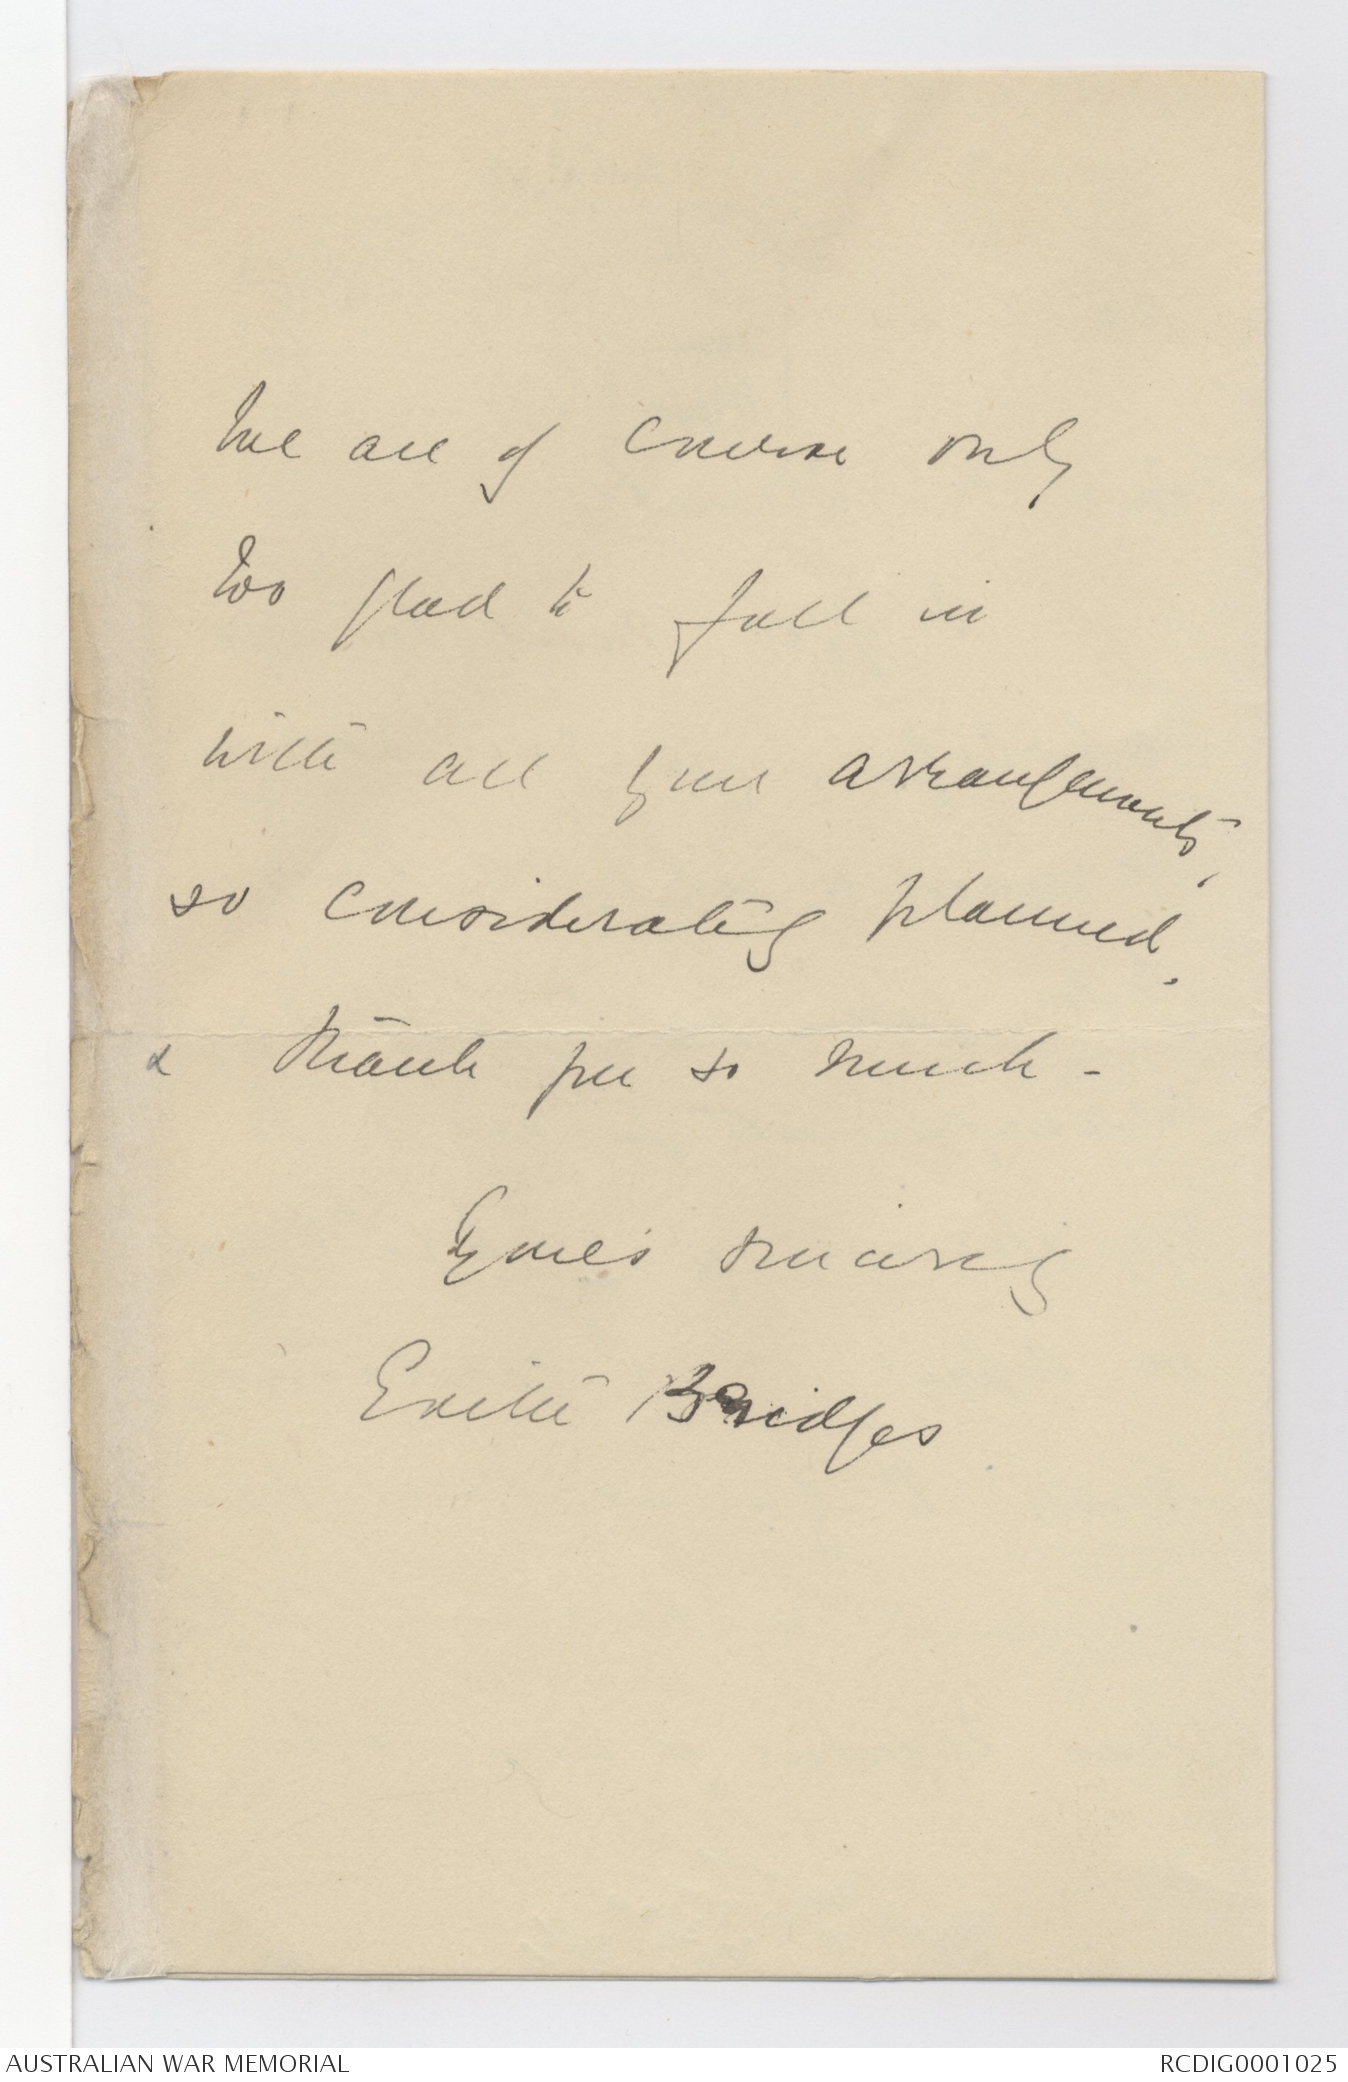 We are of course only
too glad to fall in
with all your arrangements,
so considerately planned,
& thank you so much -
Yours sincerely
Edith Bridges
AUSTRALIAN WAR MEMORIAL
RCDIG0001025